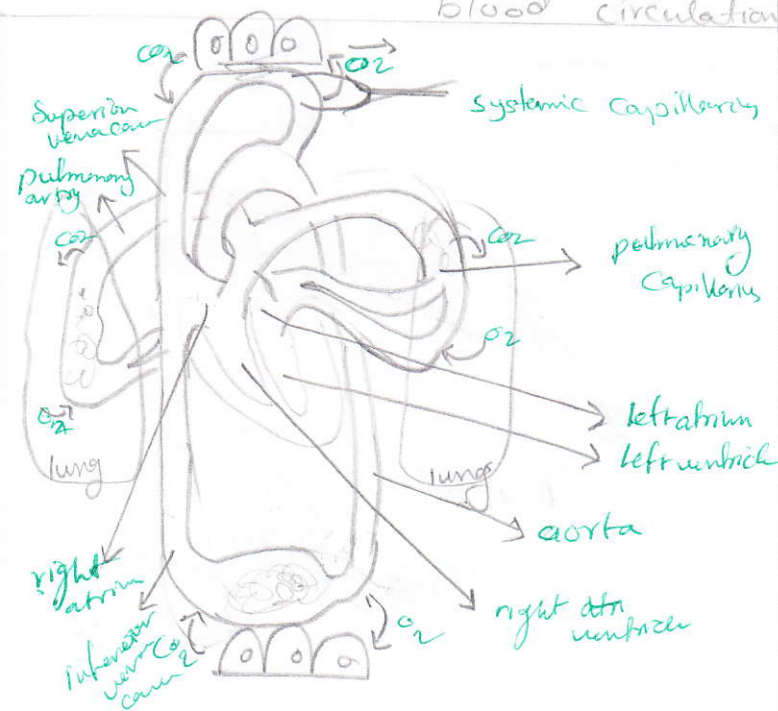 blood circulation
CO2
CO2
systemic capillaries
Superior
vena cava
pulmonary
artry
CO2
CO2
pulmonary
Capillaries
O2
O2
left atrium
left ventricle
lung
lungs
aorta
right
atrium
right atri
ventricle
O2
Inferior
vena
cava
CO2